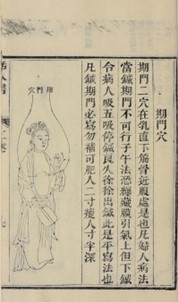 期門穴
期門二穴在乳直下筋骨近腹處是也凡婦人病法
當鍼期門不可行子午法恐緣藏膜引氣上但下鍼
令病人吸五吸停鍼良久徐徐出鍼此是平寫法也
凡鍼期門必寫勿補可肥人二寸瘦人寸半深
期門穴
人書